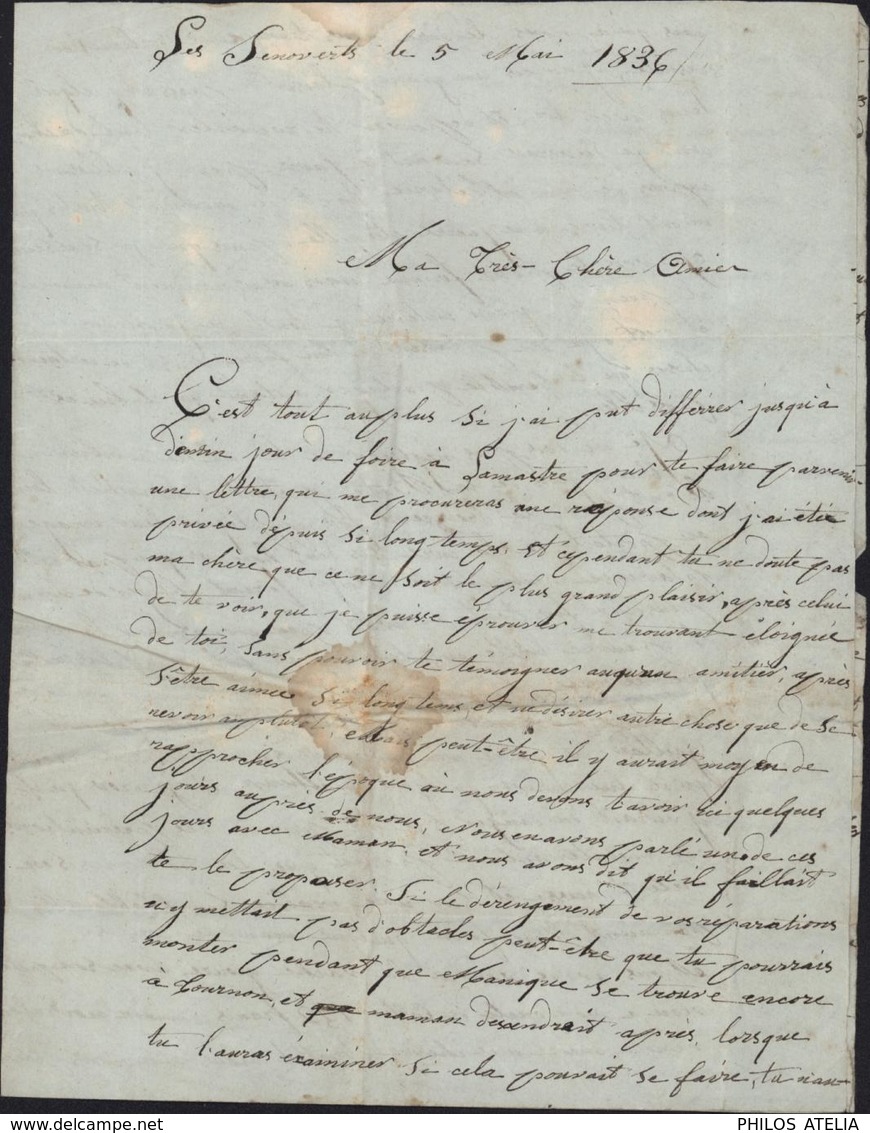 Les Senoverts le 5 Mai 1836
Ma Très-Chère Amie
C'est tout au plus si j'ai put différer jusqu'à
demin jour de foire à Lamastre pour te faire parvenir
une lettre, qui me procureras une réponse dont j'ai étée
privée dépuis si long-temps. Et cependant tu ne doute pas
ma chère que ce ne soit le plus grand plaisir, après celui
de te voir, que je puisse éprouver me trouvant éloignée
de toi, sans pouvoir te témoigner auqu'un amitier, après
s'être aimée si long-tems, et ne désirer autre chose que de se
revoir au plutot, peut-être il y aurait moyen de
rapprocher l'époque où nous devons t'avoir ici quelques
jours auprès de nous, nous en avons parlé un de ces
jours avec Maman, et nous avons dit qu'il faillait
te le proposer. Si le dérengement de vos réparations
n'y mettait pas d'obtacles peut-être que tu pourrais
monter pendant que Manique se trouve encore
à Cournon, et que maman desendrait après, lorsque
tu l'auras éxaminer si cela pouvait se faire, tu n'au-
PHILOS ATELIA